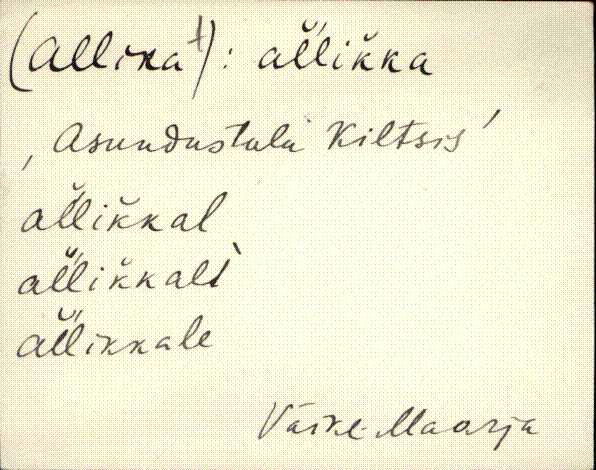 (Allika⁺): al̆likka
‚Asundustalu Kiltsis'
al̆likkal
al̆likkalt
al̆likkale
Väike-Maarja